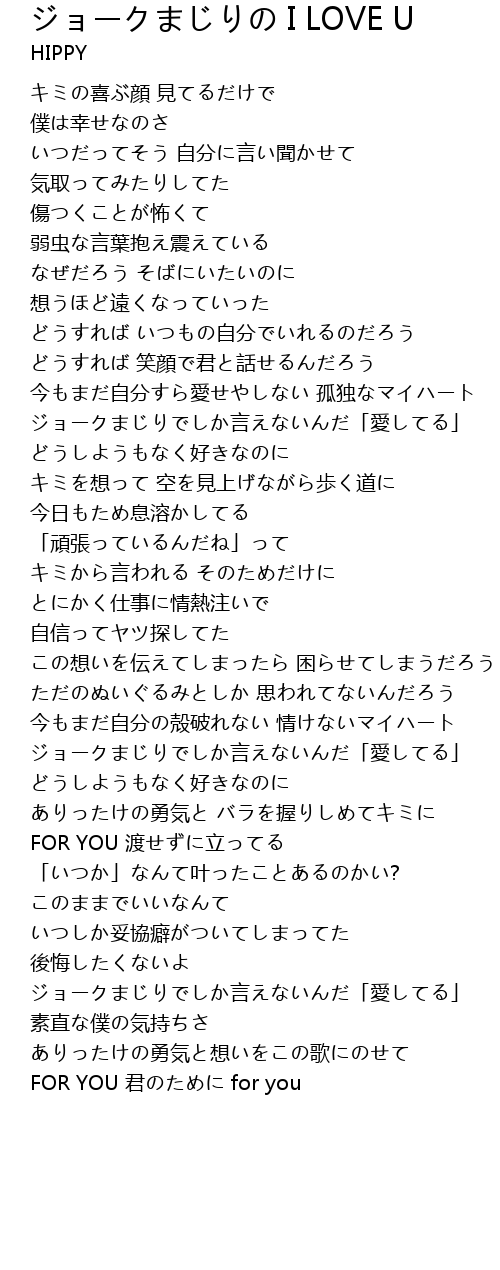 ジョークまじりの I LOVE U
HIPPY
キミの喜ぶ顔 見てるだけで
僕は幸せなのさ
いつだってそう 自分に言い聞かせて
気取ってみたりしてた
傷つくことが怖くて
弱虫な言葉抱え震えている
なぜだろう そばにいたいのに
想うほど遠くなっていった
どうすれば いつもの自分でいれるのだろう
どうすれば 笑顔で君と話せるんだろう
今もまだ自分すら愛せやしない 孤独なマイハート
ジョークまじりでしか言えないんだ「愛してる」
どうしようもなく好きなのに
キミを想って 空を見上げながら歩く道に
今日もため息溶かしてる
「頑張っているんだね」って
キミから言われる そのためだけに
とにかく仕事に情熱注いで
自信ってヤツ探してた
この想いを伝えてしまったら 困らせてしまうだろう
ただのぬいぐるみとしか 思われてないんだろう
今もまだ自分の殻破れない 情けないマイハート
ジョークまじりでしか言えないんだ「愛してる」
どうしようもなく好きなのに
ありったけの勇気と バラを握りしめてキミに
FOR YOU 渡せずに立ってる
「いつか」なんて叶ったことあるのかい?
このままでいいなんて
いつしか妥協癖がついてしまってた
後悔したくないよ
ジョークまじりでしか言えないんだ「愛してる」
素直な僕の気持ちさ
ありったけの勇気と想いをこの歌にのせて
FOR YOU 君のために for you